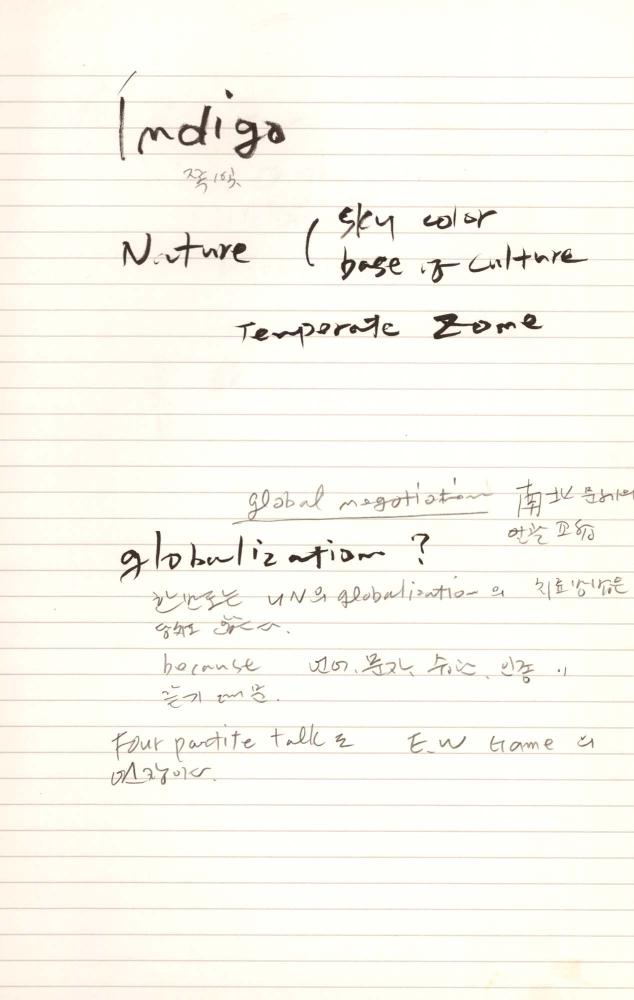 Indigo
쪽빛
Nature ( sky color
base of culture
Temperate Zone
global negotiation 南北 문제의
globalization ?
한반도는 UN의 globalization의 치료방법은
because 언어, 문자, 인종이
같기 때문.
Four partite talk로 E.W Game의
연장이다.